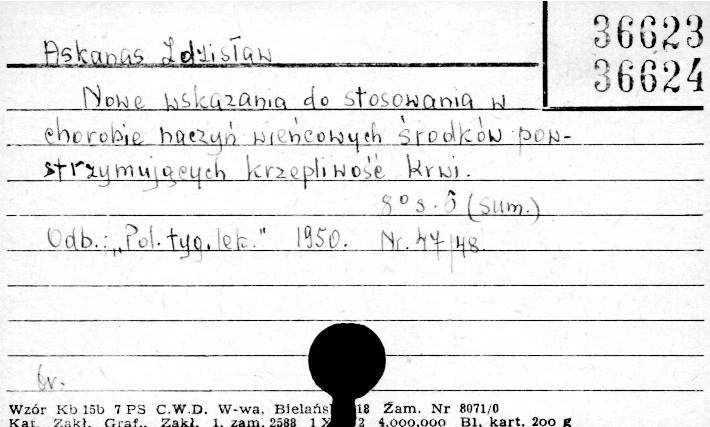 36623
36624
Askanas Zdzisław
Nowe wskazania do stosowania w
chorobie naczyń wieńcowych środków pow-
strzymujących krzepliwość krwi.
8° s. 6 (Sum.)
Odb.: „Pol. tyg. lek." 1950. Nr. 47/48
br.
Wzór Kb 15b 7 PS C.W.D. W-wa, Bielańs 18 Zam. Nr 8071/0
Kat. Zakł. Graf., Zakł. 1, zam. 2588 1 X 2 4.000.000 Bl. kart. 200 g